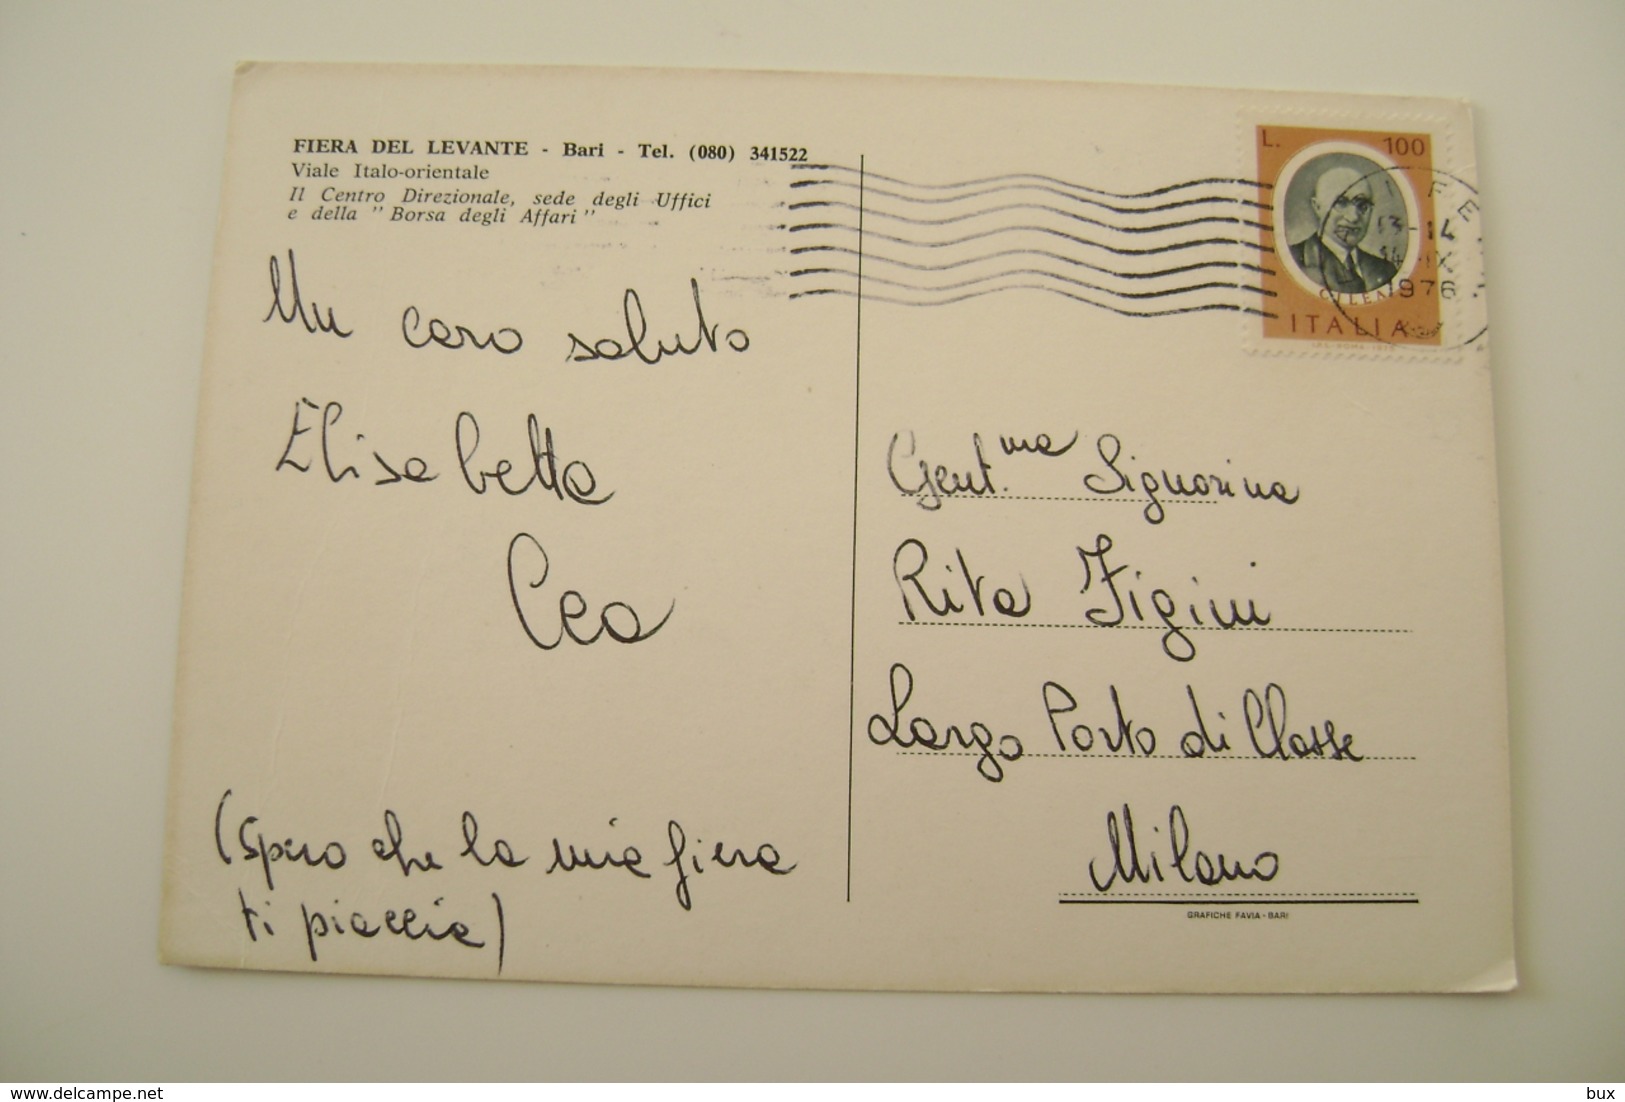 FIERA DEL LEVANTE - Bari - Tel. (080) 341522
Viale Italo-orientale
Il Centro Direzionale, sede degli Uffici
e della "Borsa degli Affari"
Un caro saluto
Elisabetta
Cea
(spero che la mia fiera
ti piaccia)
L. 100
CILEA
ITALIA
13-14
1976
Gent.ma Signorina
Rita Figini
Largo Porto di Classe
Milano
GRAFICHE FAVIA - BARI
bux